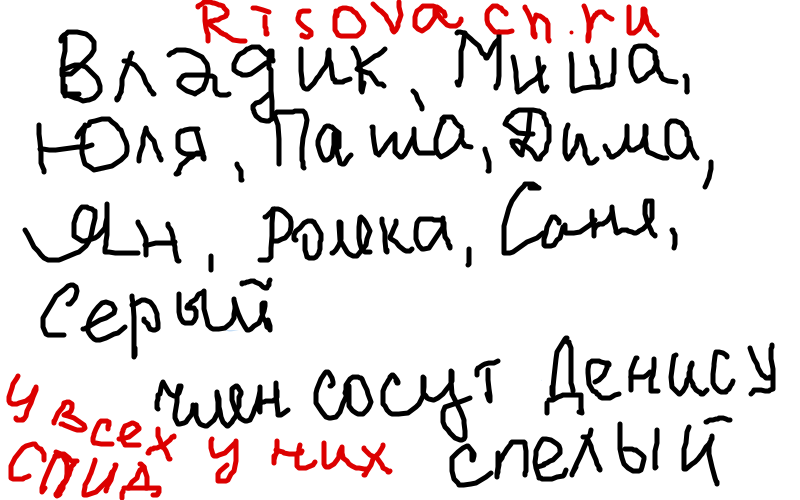 Risovach.ru
Владик, Миша,
Юля, Паша, Дима,
Ян, Ромка, Саня,
Серый
член сосут Денису
спелый
у всех у них
СПИД